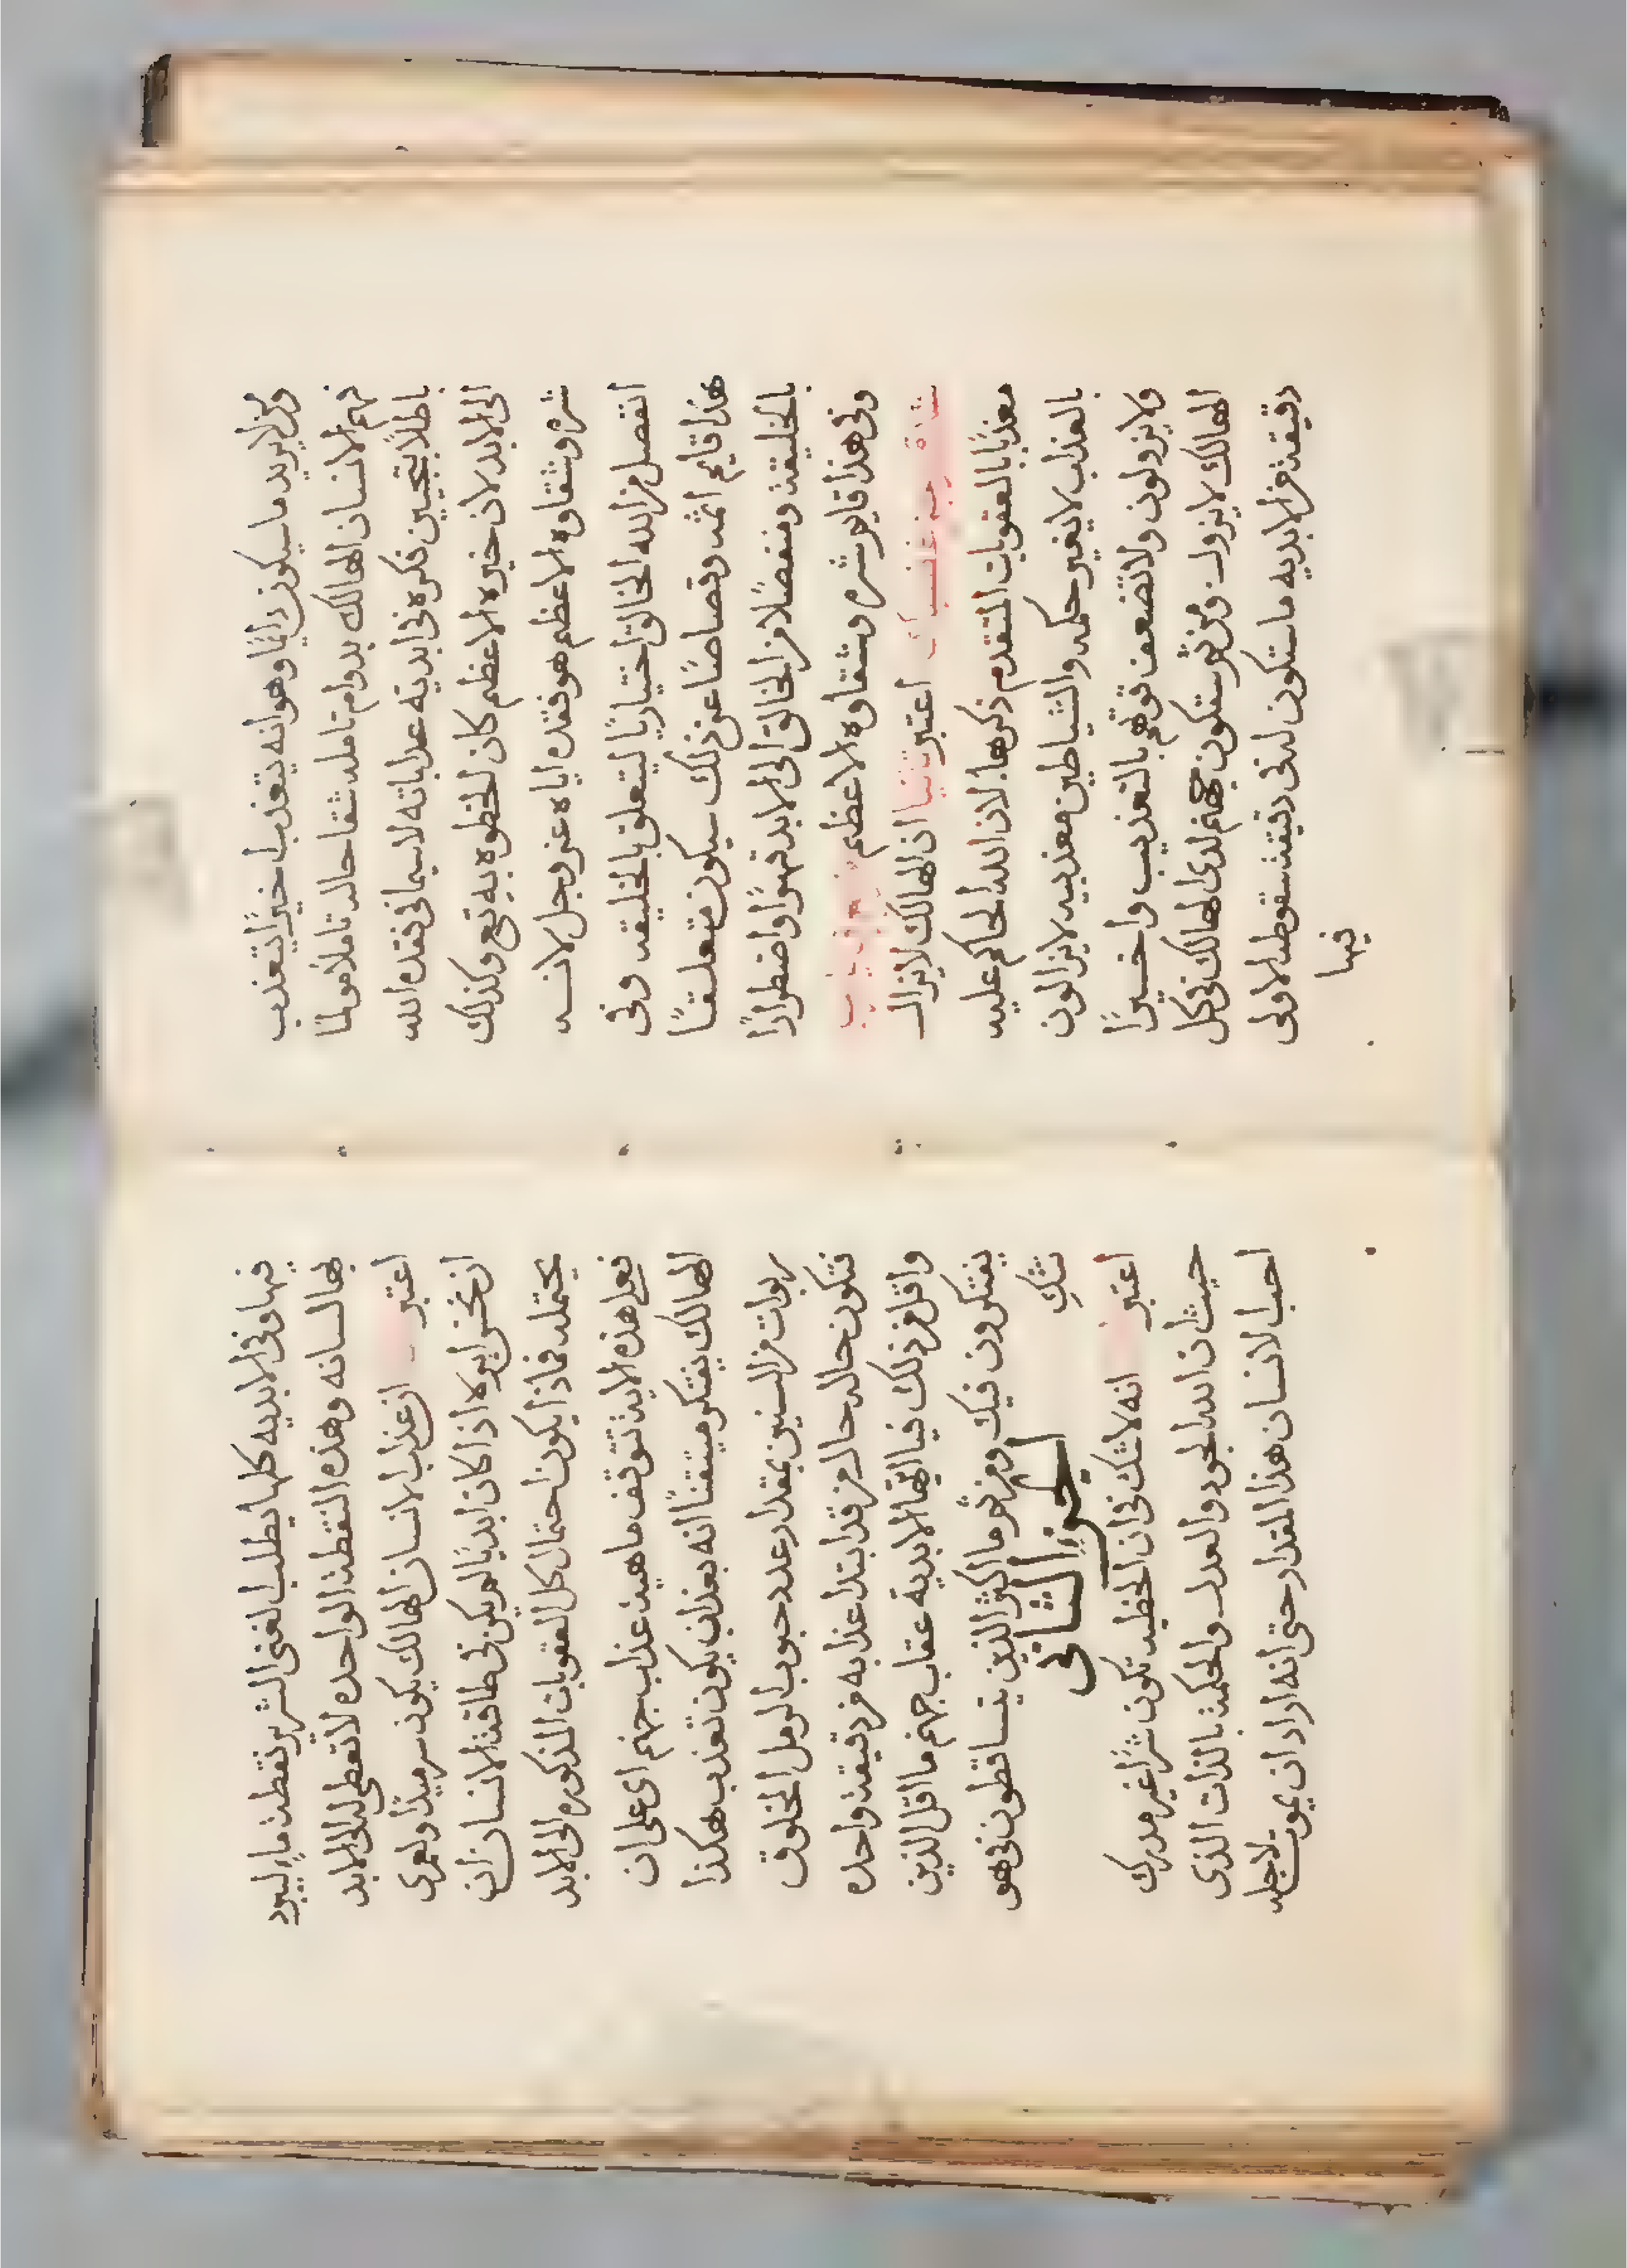 ومن لا يريد ما سيكون دايمًا وهو انه يتعذب اخيرًا يتعذب
فهم الانسان الهالك بدوام تامله شقا حاله تاملاً مولمًا
باطلاً بتجيين فكره في ابدية عذاباته لاسيما في فقده الله
الى الابد لان خيره الاعظم كان لحظوه به تع وكذلك
شره وشقاوه الاعظم هو فقده اياه عز وجل لانـــه
انفصل من الله الخالق اختياريًا ليتعلق بالخليقه وفى
هذا قايم اثمه وقصاصًا عن ذلك سيكون متعلـقـًا
بالخليقة ومنفصلًا من الخالق الى الابد قهرًا واضطرارًا
وفى هذا قايم شره وشقاوه الاعظم
اعتبر ثانيا ان الهالك لا يزال
معذبًا بالعقوبات المتقدم ذكرها. لان الله الحاكم عليه
بالعذاب لا يغير حكمه والشياطين معذبيه لا يزالون
ولا يزولون ولا تضعف قوتهم بالتعذيب واخــيرًا
الهالك لا يزول ومن ثم ستكون جهنم لدى الهالك فى كل
دقيقة من الابديه ما ستكون لدى دقيقة سقوطه الاولى
فيها
فيها وفى الابديه كلها يطلب الغنى الشرير نقطة ماء ليبرد
بها لسانه وهذه النقطة الواحده لا تعطى له الى الابد
اعتبر ان عذاب الانسان الهالك يكون سرمديًا ولعمرى
ان نخز ابره اذا كان ابديًا لم يكن فى طاقة الانسان ان
يحتمله فماذا يكون احتمال كل العقوبات المذكوره الى الابد
فعلى هذه الابدية تتوقف ماهية عذاب جهنم اى على ان
الهالك يفتكر متيقنًا انه بعد ان يكون تعذب هكذا
ربوات من السنين بمقدار عدد حبوب الرمل المخلوق
فتكون حاله حال من قد ابتدا عذابه من دقيقة واحده
واقل من ذلك فيا ايتها الابدية عقاب جهنم ما اقل الذين
يفتكرون فيك ومن ثم ما اكثر الذين يتساقطون فى هو
تتكِ
الجزء الثانى
اعتبر انه لا شك فى ان الخطيه تكون شرًا غير مدرك
حيث ان الله الجود والعدل والحكمة بالذات الذى
احب الانسان هذا المقدار حتى انه اراد ان يموت لاجله